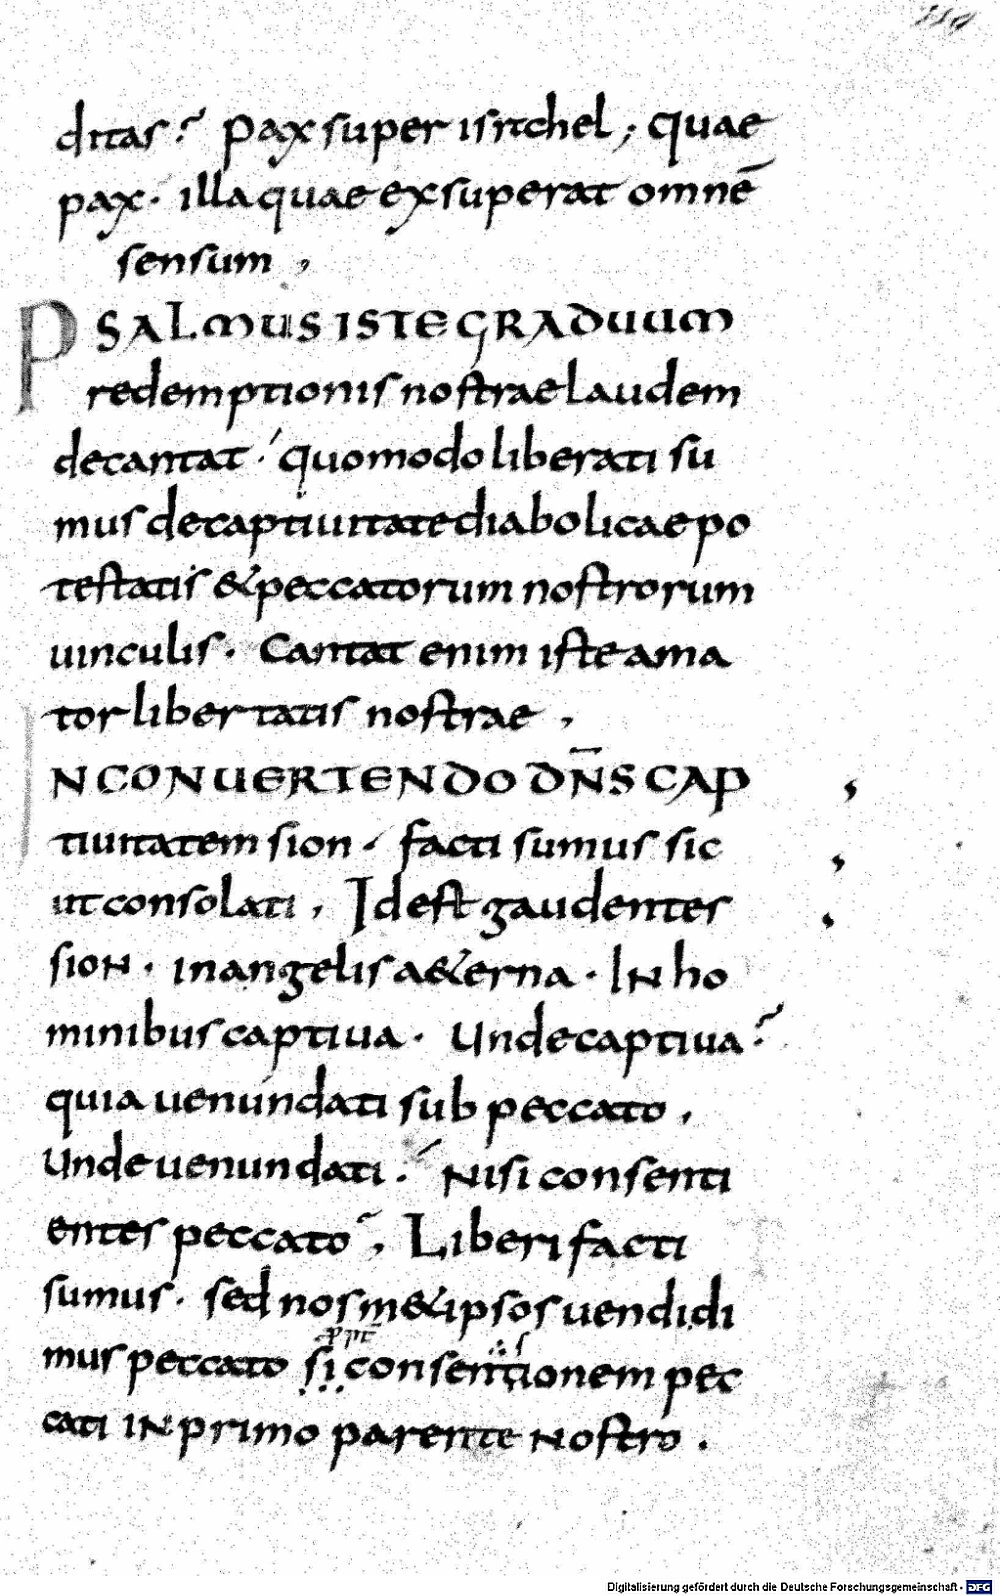 119
ditas? Pax super isrł chel; quae
pax. illa quae exsuperat omnē
sensum,
PSALMUS ISTE GRADUUM
redemptionis nostrae laudem
decantat. quomodo liberati su
mus de captiuitate diabolicae po
testatis & peccatorum nostrorum
uinculis. Cantat enim iste ama
tor libertatis nostrae,
IN CONUERTENDO DN̄S CAP
tiuitatem sion. facti sumus sic
ut consolati, Id est gaudentes
sion. in angelis a&erna. In ho
minibus captiua. Unde captiua?
quia uenundati sub peccato,
Unde uenundati. Nisi consenti
entes peccato, Liberi facti
sumus. sed nos m&ipsos uendidi
mus peccato si consentionem pec
cati in primo parente nostro.
Digitalisierung gefördert durch die Deutsche Forschungsgemeinschaft - DFG